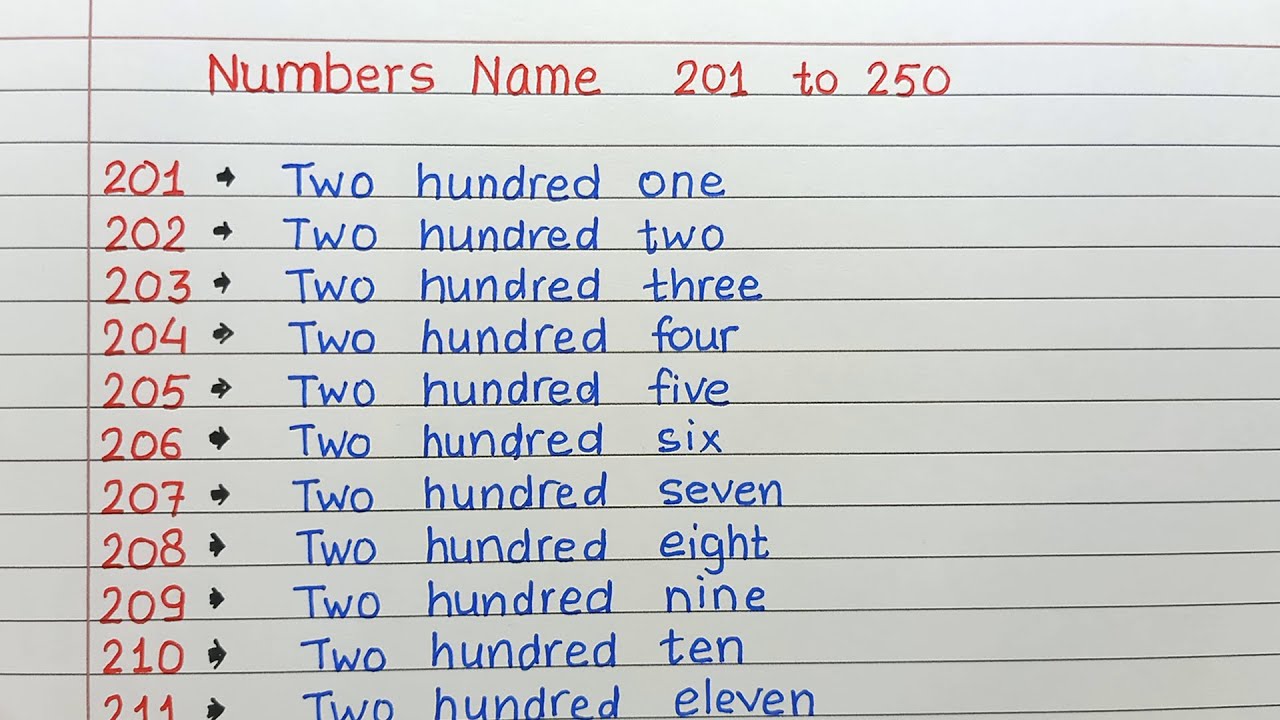 Numbers Name 201 to 250
201 → Two hundred one
202 → Two hundred two
203 → Two hundred three
204 → Two hundred four
205 → Two hundred five
206 → Two hundred six
207 → Two hundred seven
208 → Two hundred eight
209 → Two hundred nine
210 → Two hundred ten
211 → Two hundred eleven